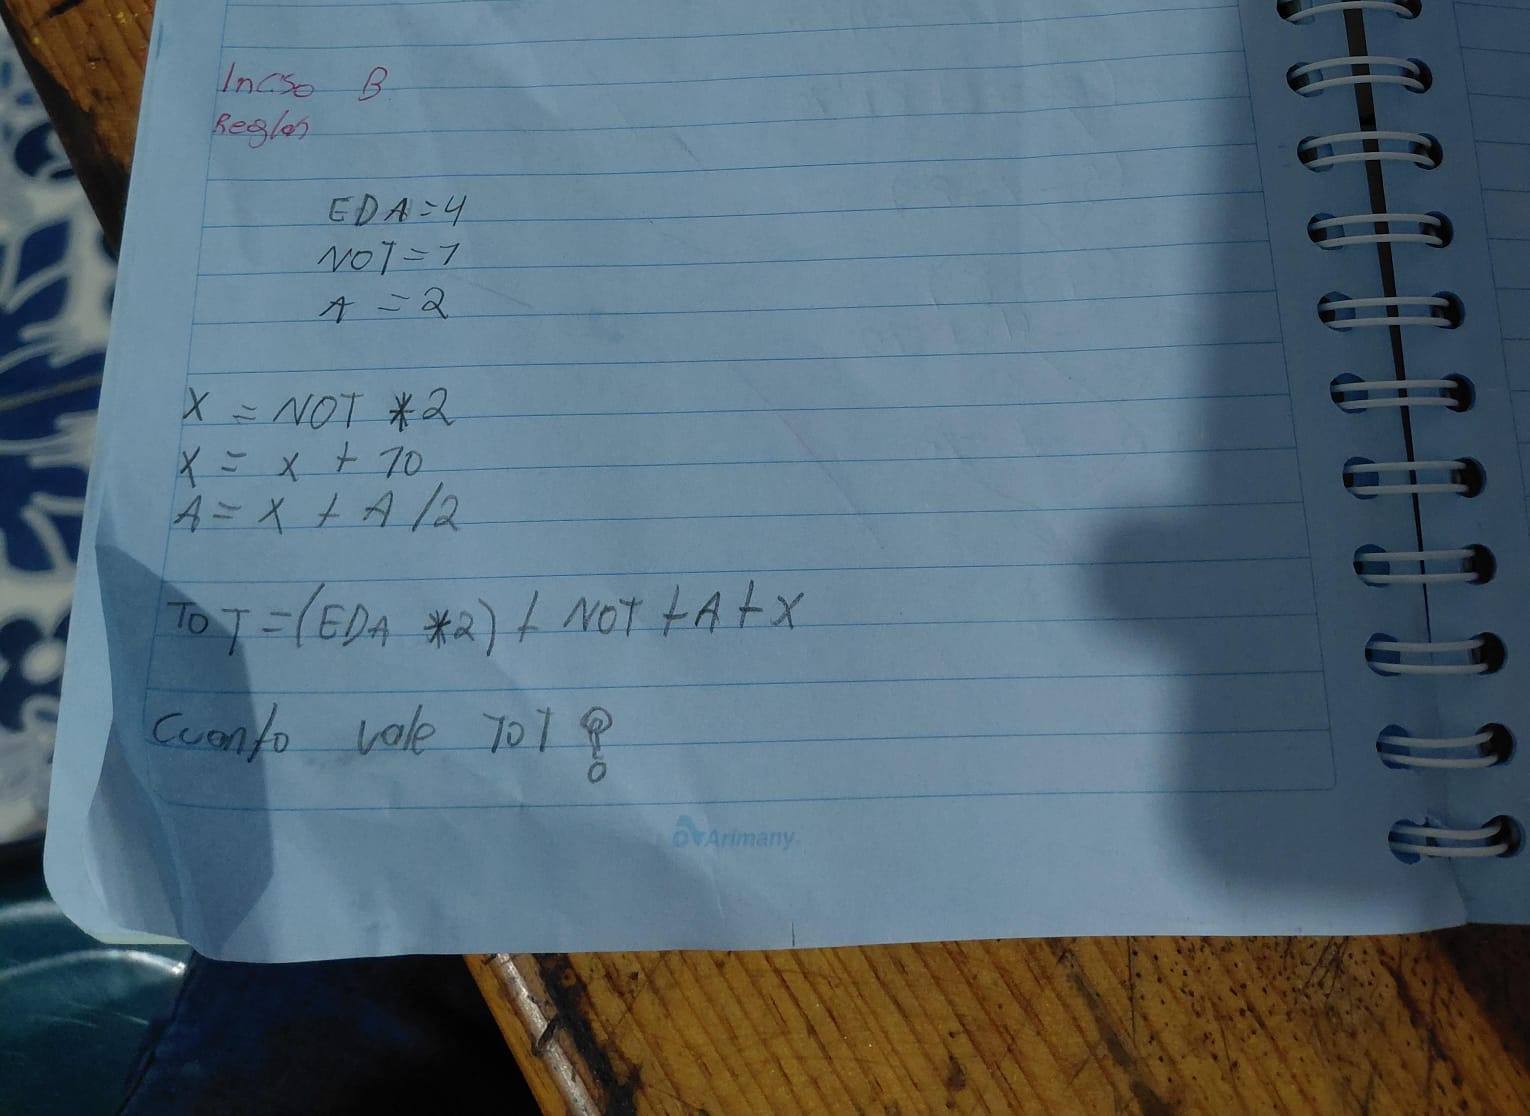 Inciso B
Reglas
EDA=4
NOT=7
A=2
X = NOT *2
X = x + 10
A = X + A /2
TOT=(EDA *2) + NOT +A+X
Cuanto vale TOT?
Arimany